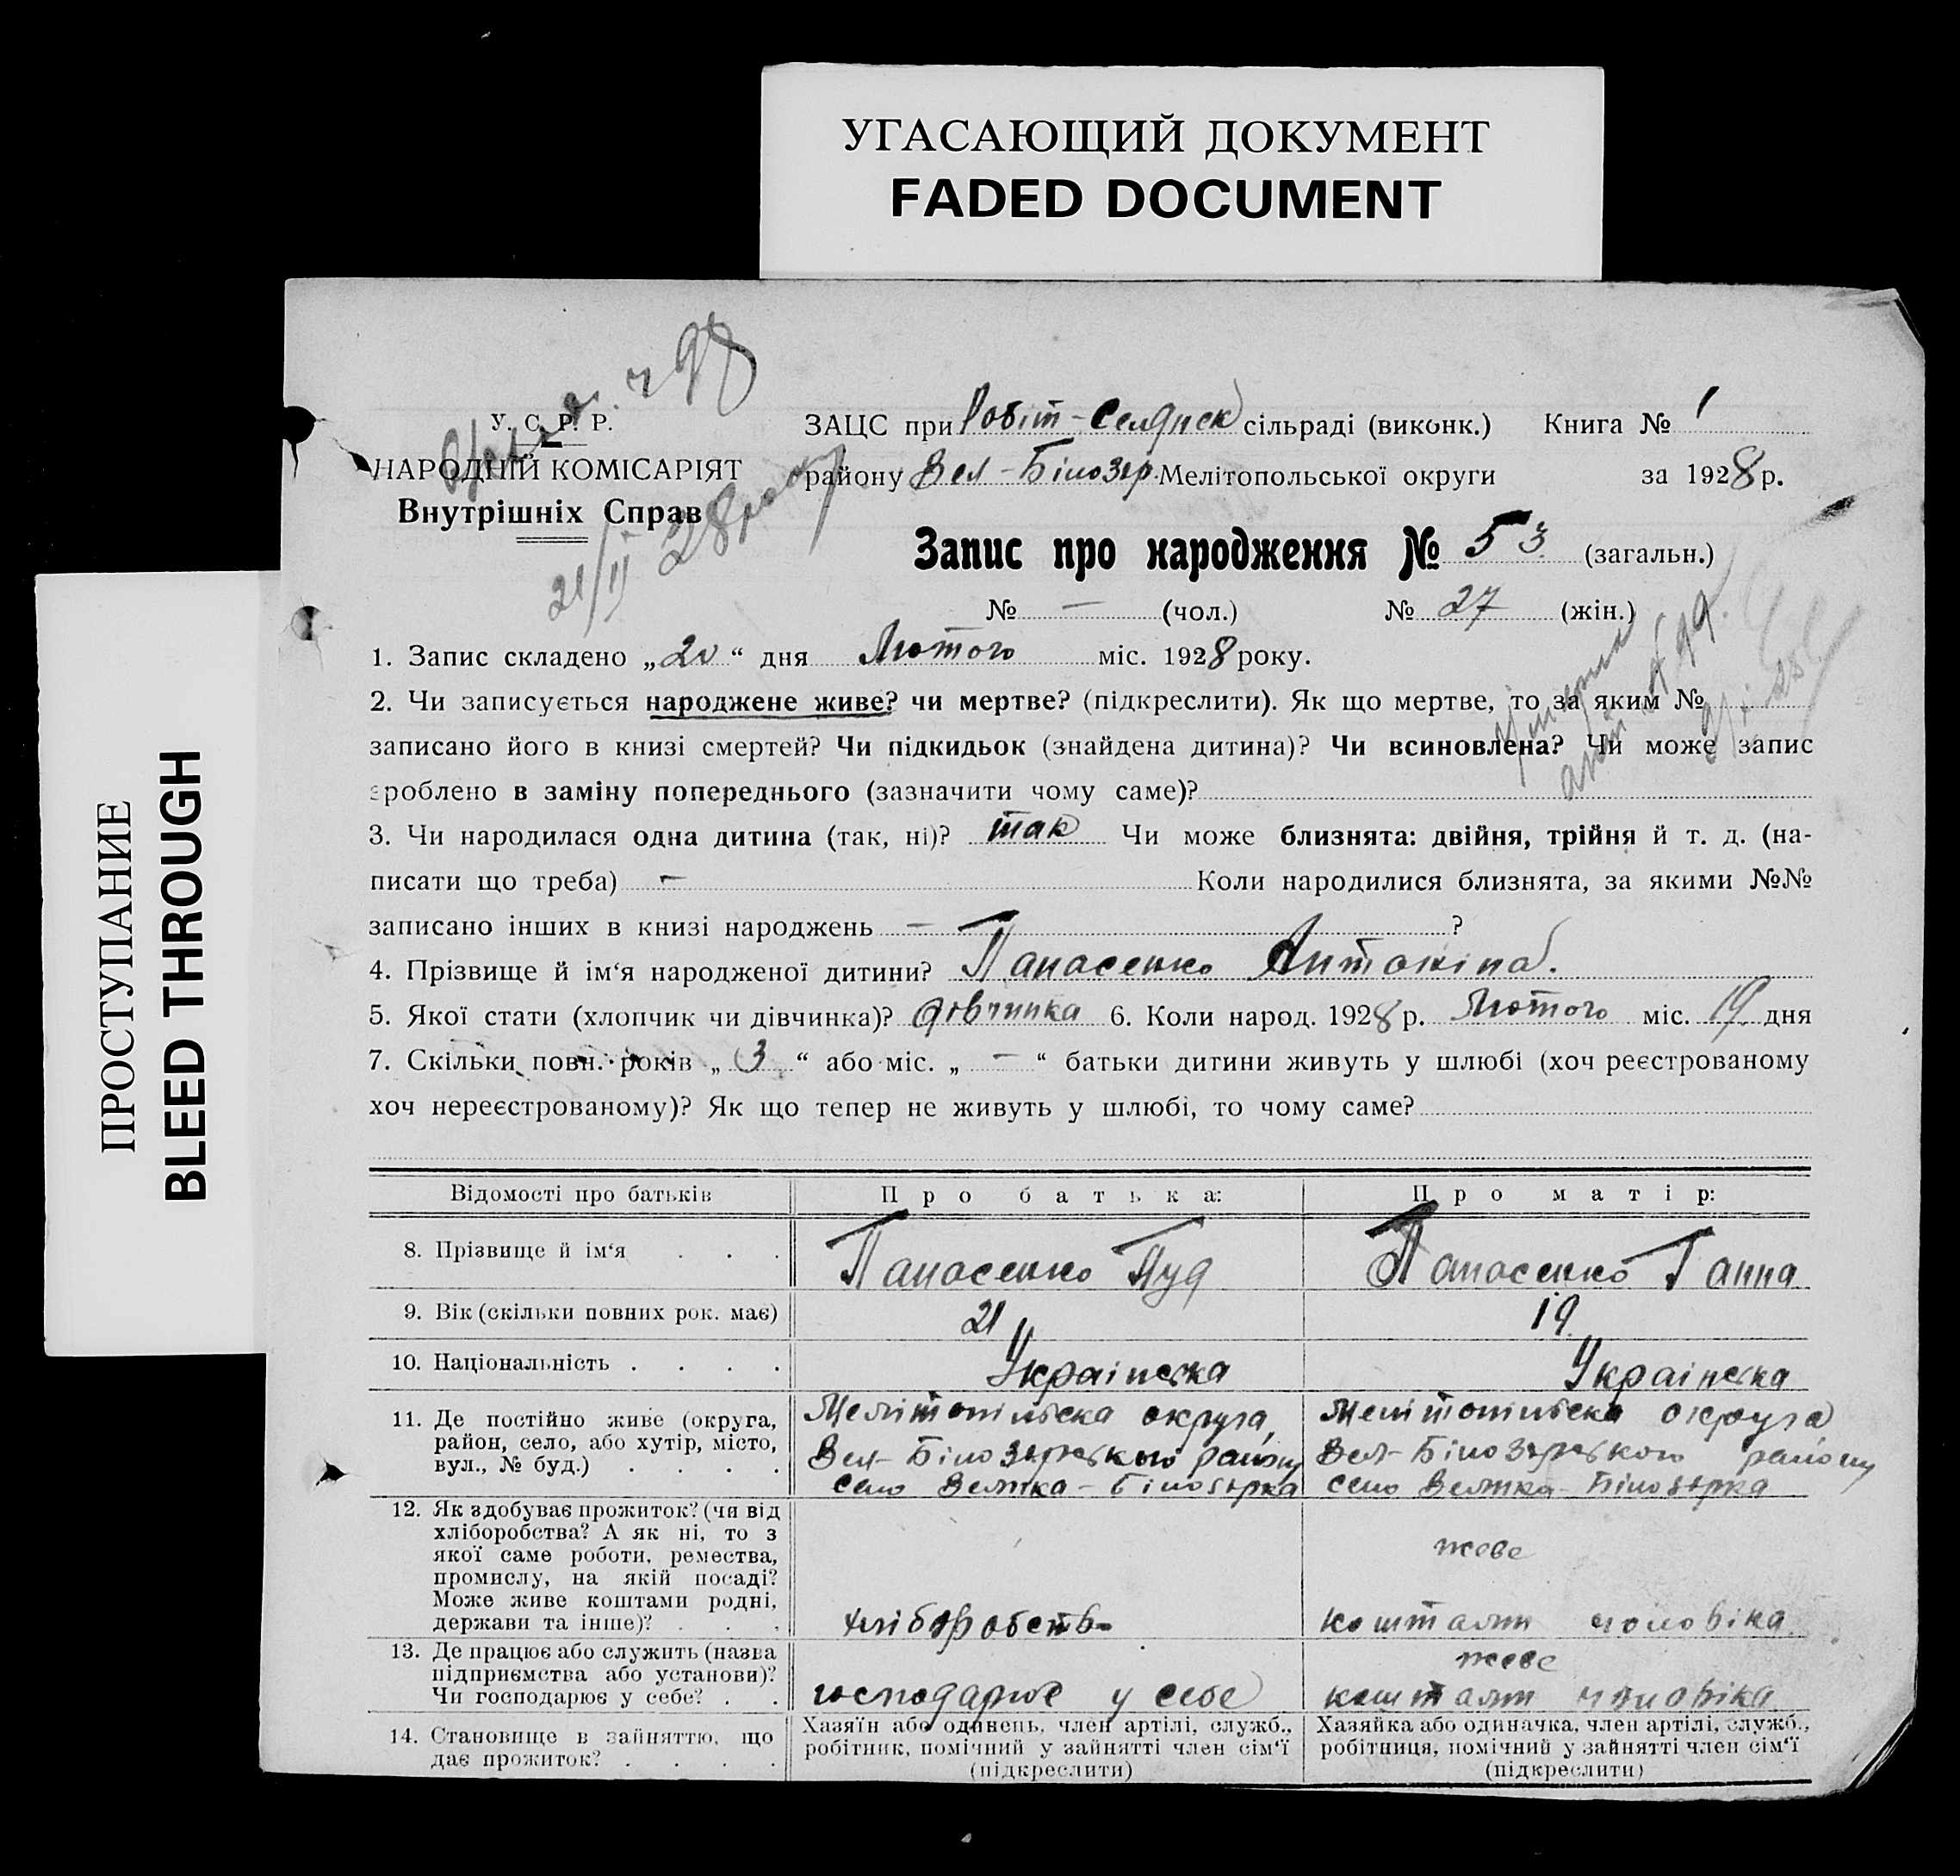 УГАСАЮЩИЙ ДОКУМЕНТ
FADED DOCUMENT
ПРОСТУПАНИЕ
BLEED THROUGH
У. С. Р. Р.
НАРОДНІЙ КОМІСАРІЯТ
Внутрішніх Справ
21/II 28 року
ЗАЦС при Робіт-Селянск сільраді (виконк.) Книга № 1
району Вел-Білозер. Мелітопольської округи за 1928 р.
Запис про народження № 53 (загальн.)
№ — (чол.) № 27 (жін.)
1. Запис складено „20“ дня Лютого міс. 1928 року.
2. Чи записується народжене живе? чи мертве? (підкреслити). Як що мертве, то за яким №
записано його в книзі смертей? Чи підкидьок (знайдена дитина)? Чи всиновлена? Чи може запис
зроблено в заміну попереднього (зазначити чому саме)?
умерла
3. Чи народилася одна дитина (так, ні)? так Чи може близнята: двійня, трійня й т. д. (на-
писати що треба) — Коли народилися близнята, за якими №№
записано інших в книзі народжень — ?
4. Прізвище й ім‘я народженої дитини? Панасенко Антоніна.
5. Якої стати (хлопчик чи дівчинка)? дівчинка 6. Коли народ. 1928 р. Лютого міс. 19 дня
7. Скільки повн. років „3“ або міс. „—“ батьки дитини живуть у шлюбі (хоч реєстрованому
хоч нереєстрованому)? Як що тепер не живуть у шлюбі, то чому саме?
Відомості про батьків Про батька: Про матір:
8. Прізвище й ім‘я . . . Панасенко Пуд Панасенко Ганна
9. Вік (скільки повних рок. має) 21 19
10. Національність . . . . Українська Українська
11. Де постійно живе (округа, район, село, або хутір, місто, вул., № буд.) . . . .
Мелітопільска округа,
Вел-Білозерського району
село Велика-Білозерка
Мелітопільска округа
Вел-Білозерського району
село Велика-Білозерка
12. Як здобуває прожиток? (чи від
хліборобства? А як ні, то з
якої саме роботи, ремества,
промислу, на якій посаді?
Може живе коштами родні,
держави та інше)? . . .
хліборобств
живе
коштами чоловіка
13. Де працює або служить (назва
підприємства або установи)?
Чи господарює у себе? . .
господарює у себе
живе
коштами чоловіка
14. Становище в зайняттю, що
дає прожиток? . . . .
Хазяїн або одинець, член артілі, служб.,
робітник, помічний у зайнятті член сім‘ї
(підкреслити)
Хазяйка або одиначка, член артілі, служб.,
робітниця, помічний у зайнятті член сім‘ї
(підкреслити)